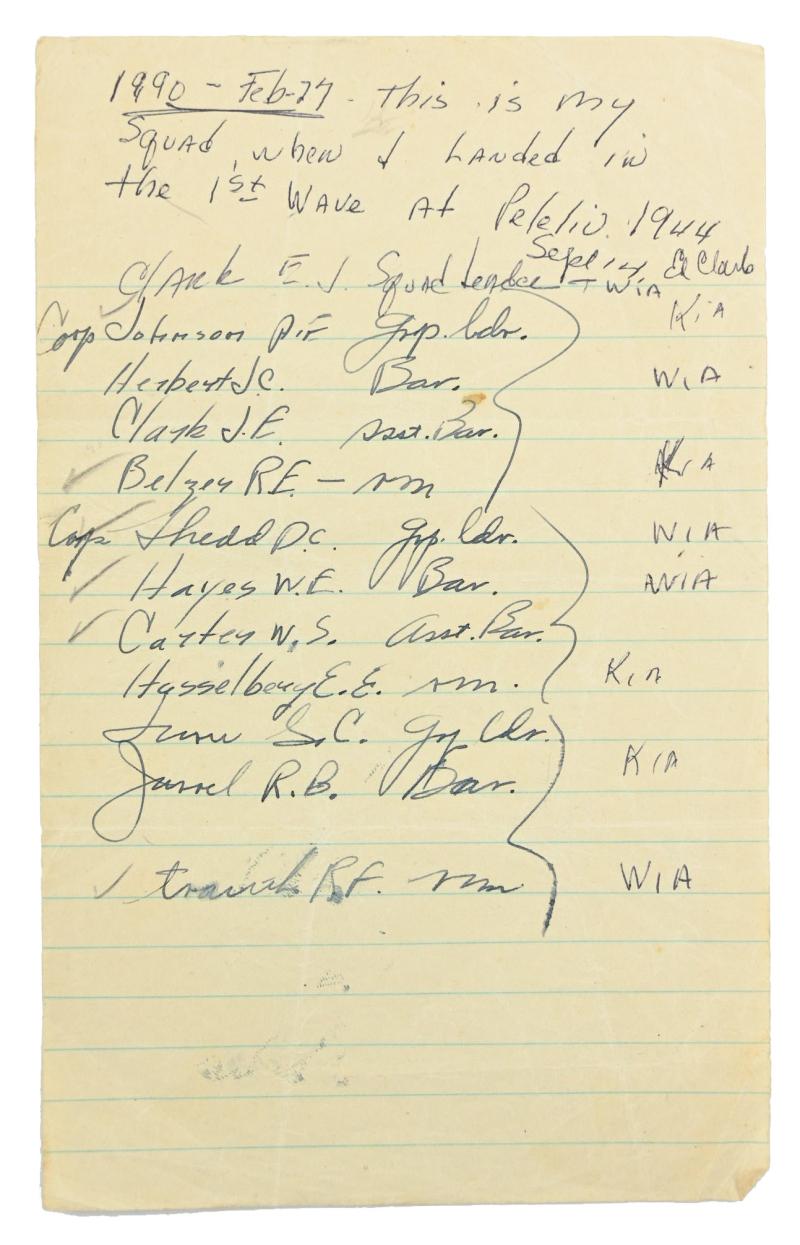 1990 - Feb-27 - this is my
Squad, when I Landed in
the 1st Wave At Peleliu. 1944
Sept 14 Ed Clark
Clark E. J. Squad Leader - WIA
Corp Johnson P.F. Grp. ldr. KIA
Herbert J.C. Bar. WIA
Clark J.E. Asst. Bar.
Belzer R.E. - rm KIA
Corp Shedd D.C. Grp. ldr. WIA
Hayes W.E. Bar. WIA
Carter W.S. Asst. Bar.
Hasselberg E.E. rm. KIA
S.C. Gr ldr.
Jarrel R.B. Bar. KIA
R.F. rm WIA